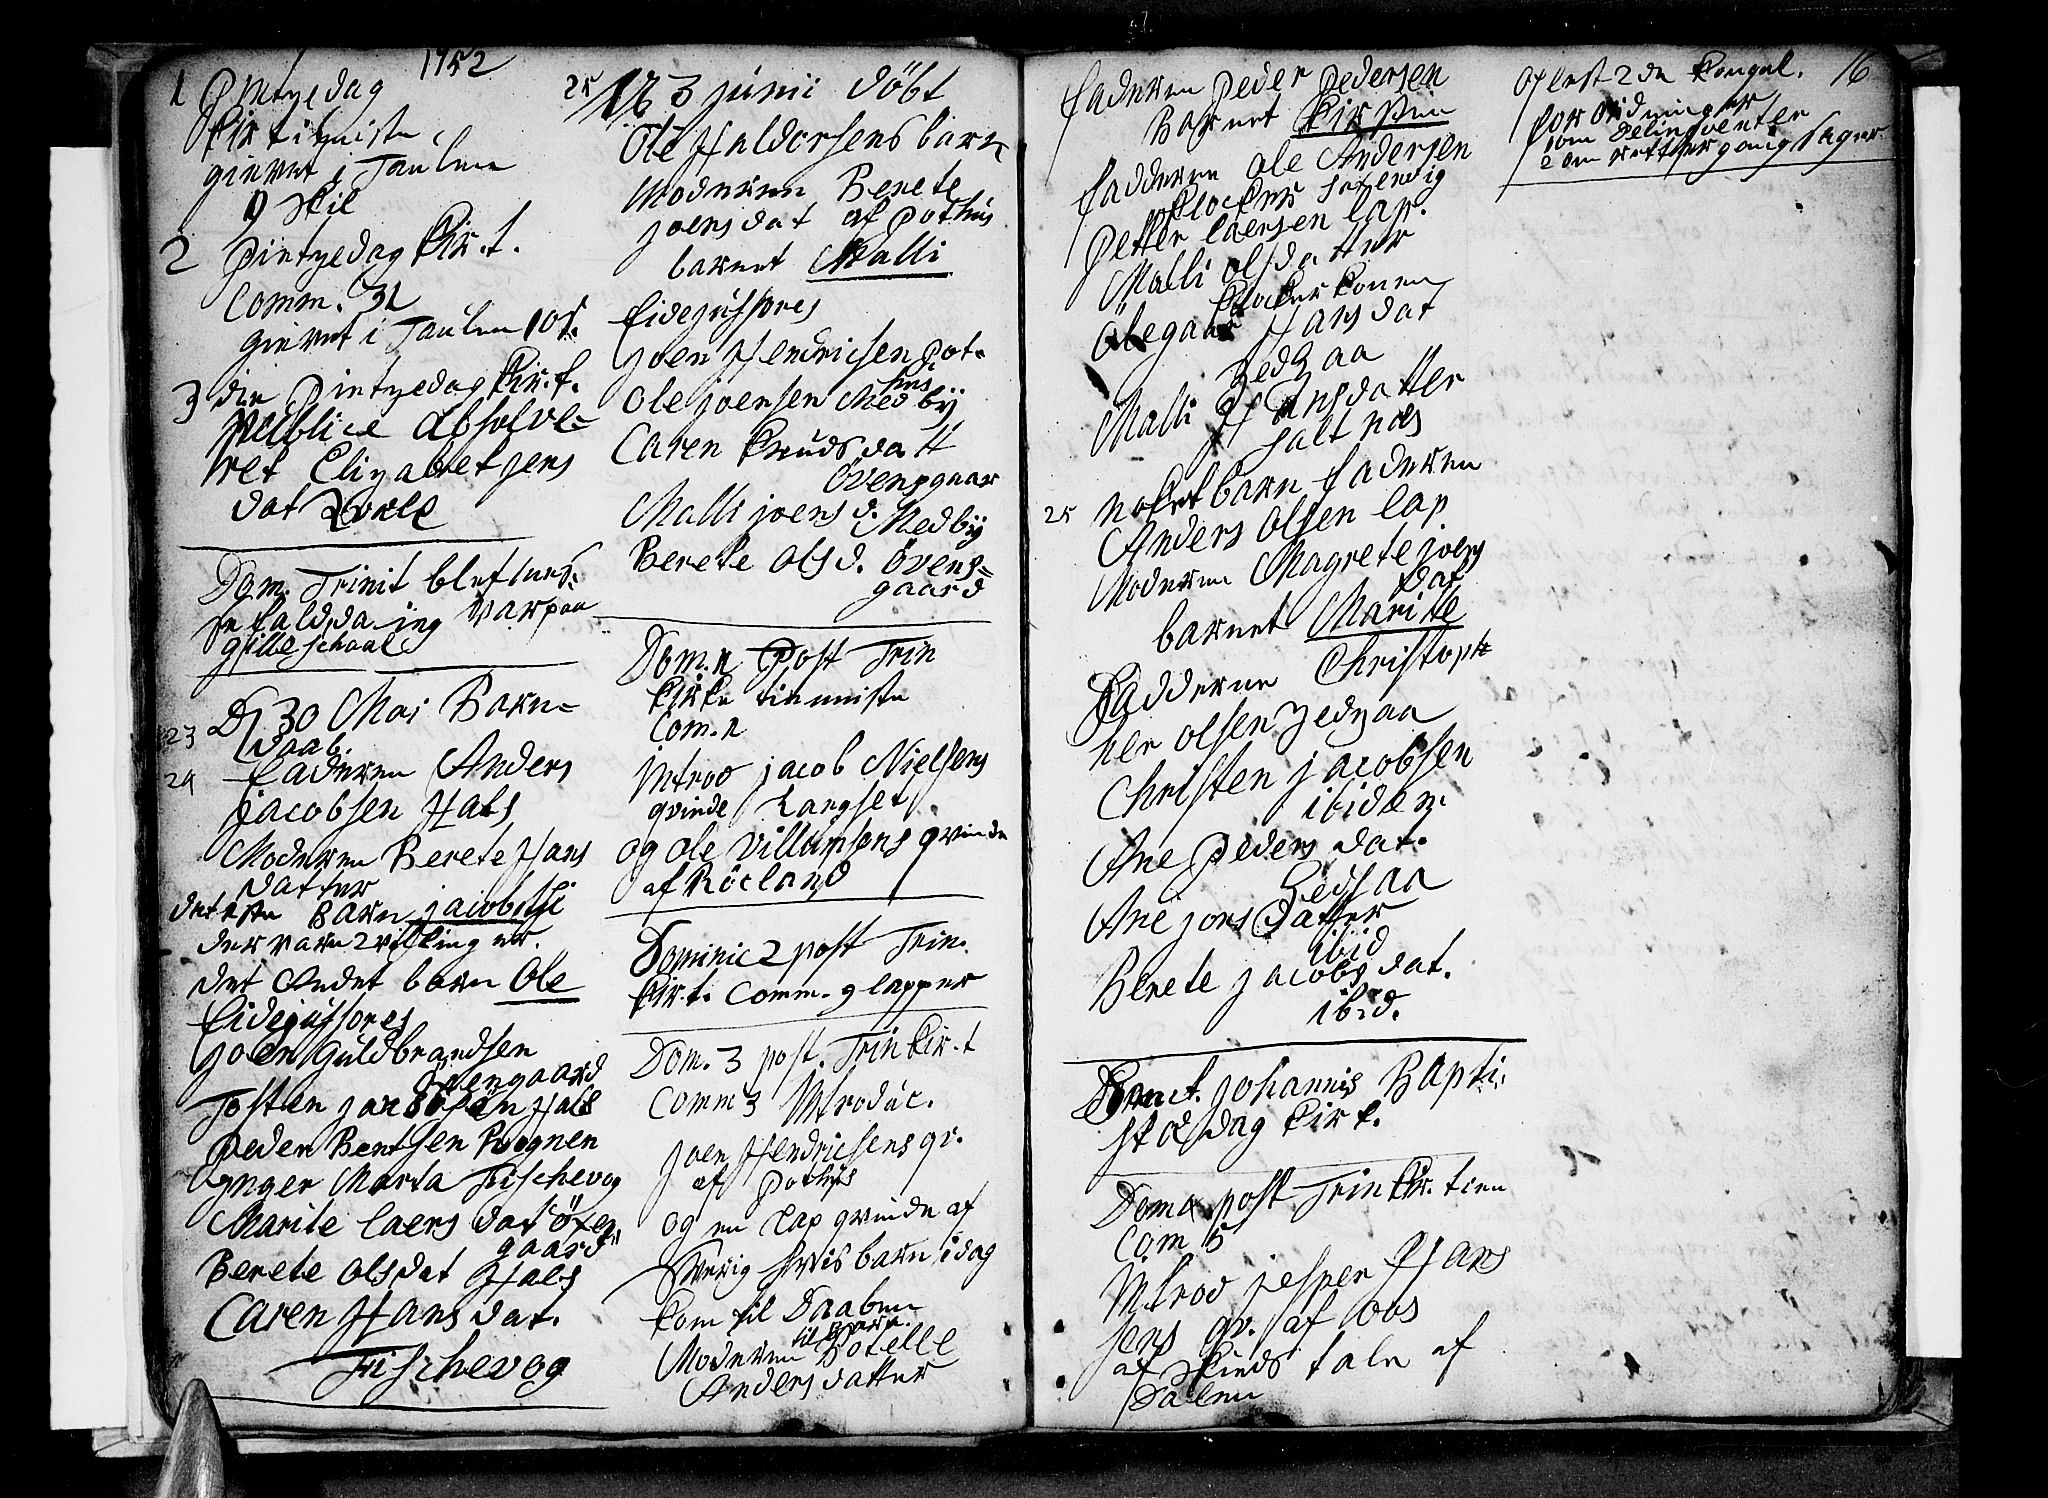 1752
1 Pintzedag
kirtieniste
gievet i Taulen
9 skil
2 Pintzedag kir.t.
Comm. 31
gievet i Taulen 10 s.
3 die Pintzedag kir.t.
publice absolve=
ret Elizabet jens
dat
Dom. Trinit blef
varpaa
D 30 Mai Barn=
23 daab.
24 faderen Anders
jacobsen Hals
Moderen Berete Hans
datter
det este Barn jacob
der varn 2villinger.
det Andet barn Ole
fidejussores
joen Guldbrandsen
Øvengaard
Tosten jacobsen Hals
Peder Bentsen Rognen
ynger Marta Fischevog
Marite Laers dat Øven
gaard
Berete Olsdat Hals
Caren Hans dat.
Fischevog
25 3 junii döbt
Ole Haldorsens barn
Moderen Berete
joensdat af Pothus
barnet Malli
fidejussores
joen Hendrichsen Pot.
hus
Ole joensen Medby
Caren Knuds datt
Ovensgaar
Malli joens d.
Medby
Berete Ols d. Övens=
gaard
Dom. 1 Post Trin
kirke tienniste
Com. 1
Introd jacob Nielsens
qvinde Langset
og Ole Villumsens qvinde
af Röeland
Dominic 2 post Trin.
kir.t. Comm. 9 lapper
Dom. 3 post. Trin kir.t
Comm 3 Introduc.
joen Hendrichsens qv.
af Pothus
og en Lap qvinde af
Sverig hvis barn idag
kom til Daaben
Moderen til barn. Botelle
Andersdatter
16
faderen Peder Pedersen
Barnet Kirsten
fadderne Ole Andersen
klocker
Petter Laersen lap.
Malli Olsdatter
klocker konen
Olegaar Hansdat
Zedzaa
Malli Hansdatter
Saltnes
25 noket barn faderen
Anders Olsen lap
Moderen Magrete joens
dat
barnet Marite
fadderne Christoph
her Olsen Zedzaa
Christen jacobsen
ibidem.
Ane Peders dat.
Zedsaa
Ane jons datter
ibid
Berete jacobs dat.
ibid.
Sanct. johannis Bapti.
stæ dag kirk.
Dom 4 post Trin kir. tien
Com 5
Introd jesper Hans
sens qv. af
af skieds tale af
Dalen
Oflest 2 de kongel.
forordninger
1 om delinqventer
2 om rettergang sager.